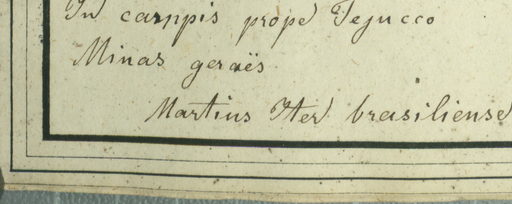 In campis prope Tejucco
Minas geraës
Martius Iter brasiliense